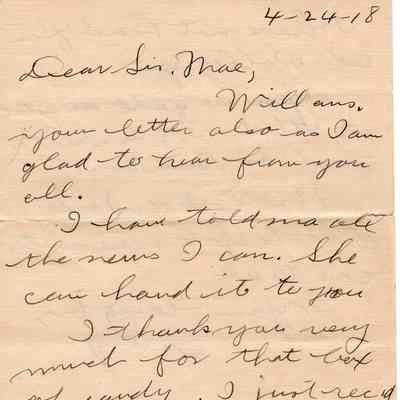 4-24-18
Dear Sis. Mae,
Will ans.
your letter also as I am
glad to hear from you
all.
I have told ma all
the news I can. She
can hand it to you
I thank you very
much for that box
of candy. I just rec'd